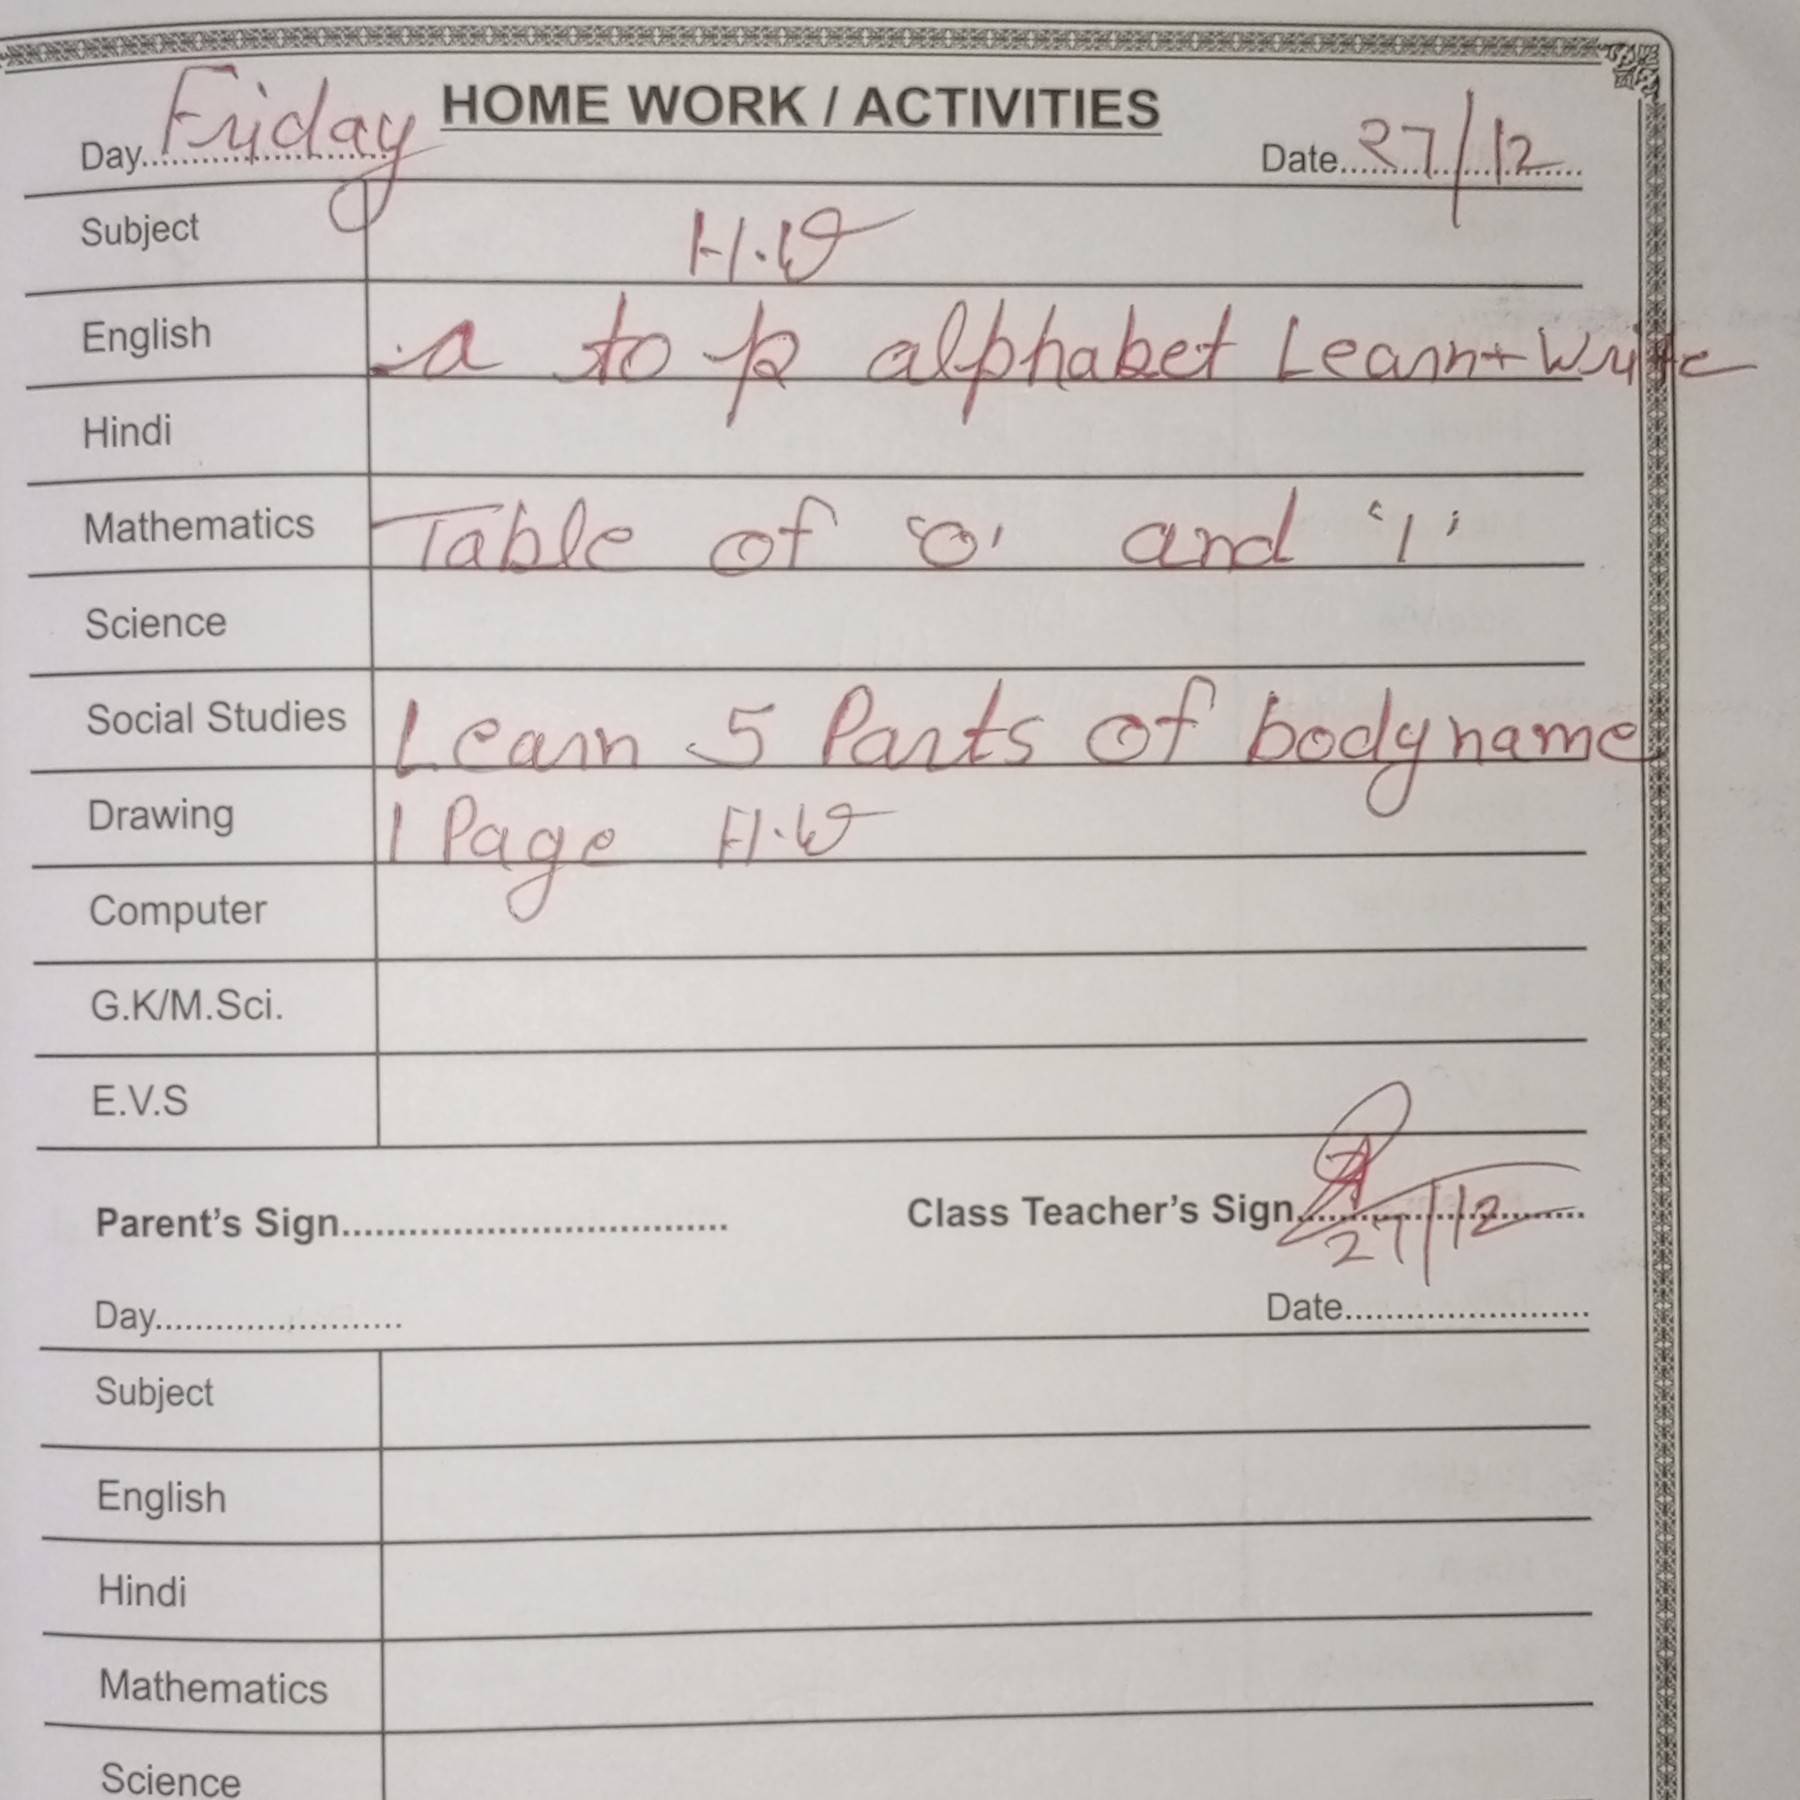 HOME WORK / ACTIVITIES
Day Friday Date 27/12
Subject H.W
English a to p alphabet Learn + Write
Hindi
Mathematics Table of '0' and '1'
Science
Social Studies Learn 5 Parts of body name
Drawing 1 Page H.W
Computer
G.K/M.Sci.
E.V.S
Parent's Sign Class Teacher's Sign
27/12
Day Date
Subject
English
Hindi
Mathematics
Science